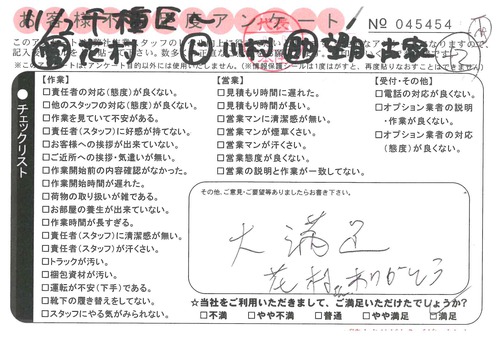 11/12 千種区へ
お客様アンケート
No 045454
花村 川村 望月、古家
※このアンケートは、アンケート目的以外には使用いたしません。(※情報保護シールは1度はがすと、再度貼りなおすことはできません)
チェックリスト
【作業】
□責任者の対応(態度)が良くない。
□他のスタッフの対応(態度)が良くない。
□作業を見ていて不安がある。
□責任者(スタッフ)に好感が持てない。
□お客様への挨拶が出来ていない。
□ご近所への挨拶・気遣いが無い。
□作業開始前の内容確認がなかった。
□作業開始時間が遅れた。
□荷物の取り扱いが雑である。
□お部屋の養生が出来ていない。
□作業時間が長すぎる。
□責任者(スタッフ)に清潔感が無い。
□責任者(スタッフ)が汗くさい。
□トラックが汚い。
□梱包資材が汚い。
□運転が不安(下手)である。
□靴下の履き替えをしてない。
□スタッフにやる気がみられない。
【営業】
□見積もり時間に遅れた。
□見積もり時間が長い。
□営業マンに清潔感が無い。
□営業マンが煙草くさい。
□営業マンが汗くさい。
□営業態度が良くない。
□営業の説明と作業が一致してない。
【受付・その他】
□電話の対応が良くない。
□オプション業者の説明
・作業が良くない。
□オプション業者の対応
(態度)が良くない。
その他、ご意見・ご要望等ありましたらお書き下さい。
大満足
花村さんありがとう
☆当社をご利用いただきまして、ご満足いただけたでしょうか?
□不満 □やや不満 □普通 □やや満足 □満足